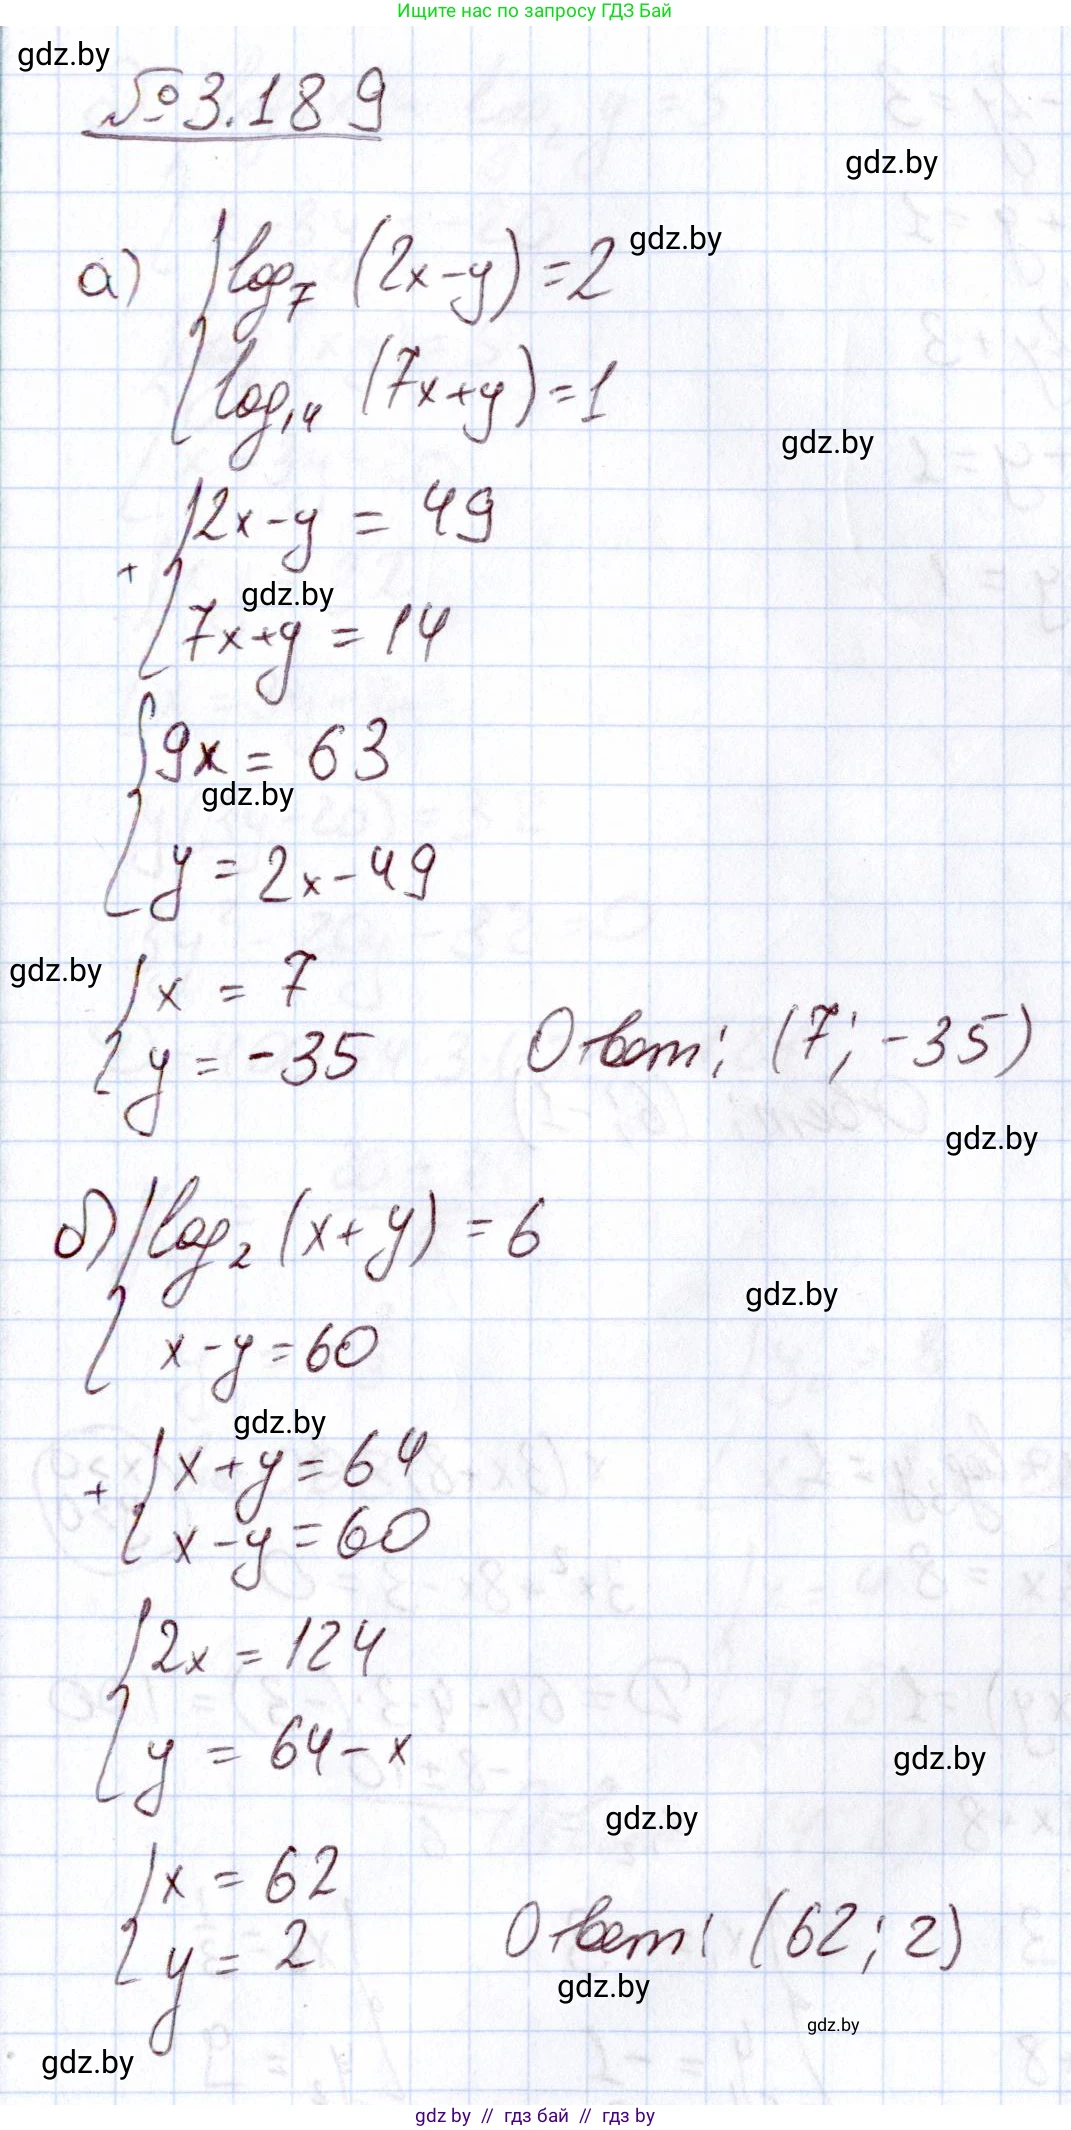 Ищите нас по запросу ГДЗ Бай
gdz.by
№3.189
gdz.by
а) log₇ (2x-y) = 2
gdz.by
log₁₄ (7x+y) = 1
gdz.by
2x-y = 49
+
gdz.by
7x+y = 14
9x = 63
gdz.by
y = 2x-49
gdz.by
x = 7
y = -35
Ответ: (7; -35)
gdz.by
б) log₂ (x+y) = 6
gdz.by
x-y=60
gdz.by
x+y=64
+
x-y=60
2x = 124
y = 64-x
gdz.by
gdz.by
x = 62
y = 2
Ответ: (62; 2)
gdz.by
gdz.by
gdz.by
gdz by // гдз бай // гдз by